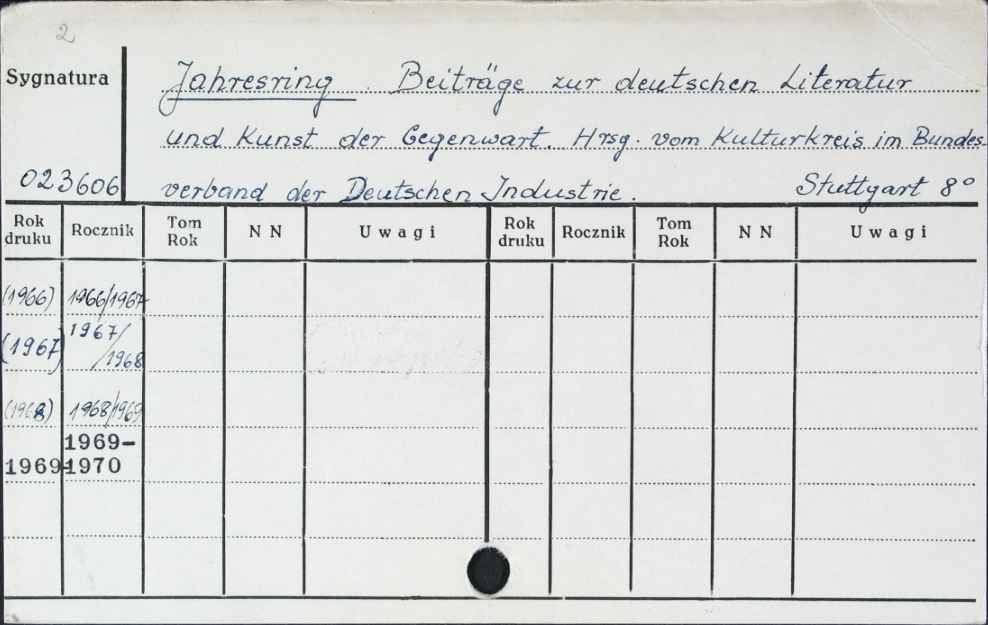 2
Sygnatura
Jahresring. Beiträge zur deutschen Literatur
und Kunst der Gegenwart. Hrsg. vom Kulturkreis im Bundes-
023606
verband der Deutschen Industrie. Stuttgart 8°
Rok druku Rocznik Tom Rok N N Uwagi Rok druku Rocznik Tom Rok N N Uwagi
(1966) 1966/1967
(1967) 1967/1968
(1968) 1968/1969
1969-
1969 1970